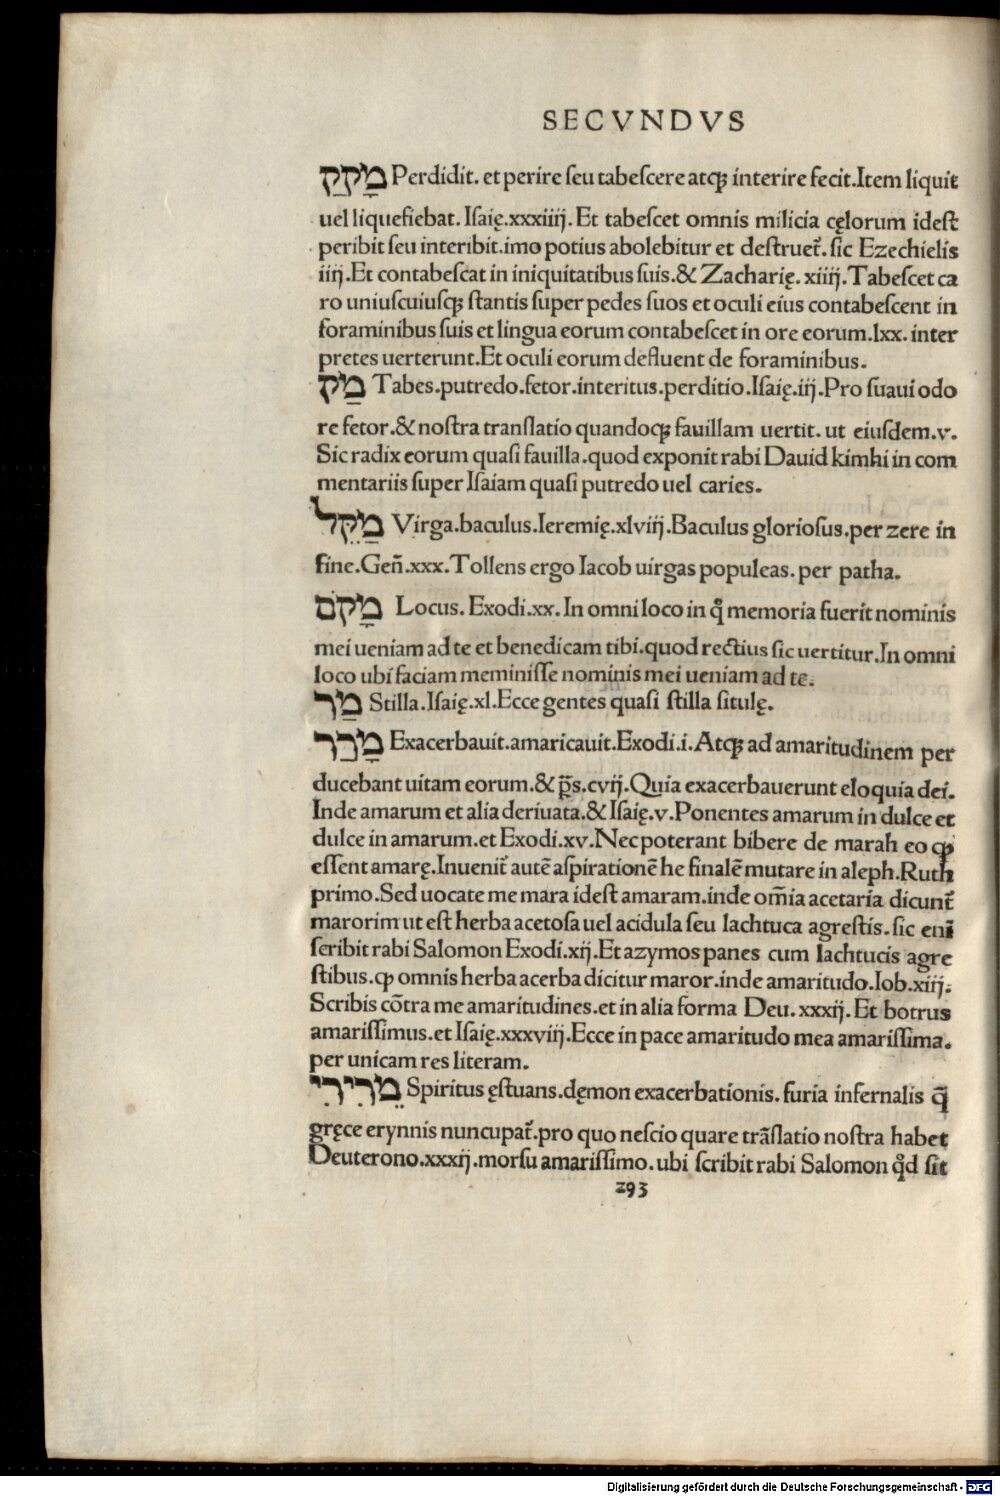 SECVNDVS
מָקַק Perdidit. et perire ſeu tabeſcere atqꝫ interire fecit.Item liquit
uel liquefiebat. Iſaię.xxxiiij. Et tabeſcet omnis milicia cęlorum ideſt
peribit ſeu interibit.imo potius abolebitur et deſtruet᷑. ſic Ezechielis
iiij.Et contabeſcat in iniquitatibus ſuis.& Zacharię. xiiij.Tabeſcet ca
ro uniuſcuiuſqꝫ ſtantis ſuper pedes ſuos et oculi eius contabeſcent in
foraminibus ſuis et lingua eorum contabeſcet in ore eorum.lxx. inter
pretes uerterunt.Et oculi eorum defluent de foraminibus.
מַק Tabes.putredo.fetor.interitus.perditio.Iſaię.iij.Pro ſuaui odo
re fetor.& noſtra tranſlatio quandoqꝫ fauillam uertit. ut eiuſdem.v.
Sic radix eorum quaſi fauilla.quod exponit rabi Dauid kimhi in com
mentariis ſuper Iſaiam quaſi putredo uel caries.
מַקֵּל Virga.baculus.Ieremię.xlviij.Baculus glorioſus.per zere in
fine.Gen̄.xxx.Tollens ergo Iacob uirgas populeas. per patha.
מָקֹם Locus. Exodi.xx. In omni loco in q̊ memoria fuerit nominis
mei ueniam ad te et benedicam tibi.quod rectius ſic uertitur.In omni
loco ubi faciam meminiſſe nominis mei ueniam ad te.
מַר Stilla.Iſaię.xl.Ecce gentes quaſi ſtilla ſitulę.
מָרַר Exacerbauit.amaricauit.Exodi.i.Atqꝫ ad amaritudinem per
ducebant uitam eorum.& p̄s.cvij.Quia exacerbauerunt eloquia dei.
Inde amarum et alia deriuata.& Iſaię.v.Ponentes amarum in dulce et
dulce in amarum.et Exodi.xv.Nec poterant bibere de marah eo ꝙ
eſſent amarę.Inuenit᷑ autē aſpirationē he finalē mutare in aleph.Ruth
primo.Sed uocate me mara ideſt amaram.inde om̄ia acetaria dicunt᷑
marorim ut eſt herba acetoſa uel acidula ſeu lachtuca agreſtis. ſic enī
ſcribit rabi Salomon Exodi.xij.Et azymos panes cum lachtucis agre
ſtibus.ꝙ omnis herba acerba dicitur maror.inde amaritudo.Iob.xiij.
Scribis cōtra me amaritudines.et in alia forma Deu. xxxij.Et botrus
amariſſimus.et Iſaię.xxxviij.Ecce in pace amaritudo mea amariſſima.
per unicam res literam.
מְרִירִי Spiritus ęſtuans.dęmon exacerbationis. furia infernalis q̄
gręce erynnis nuncupat᷑.pro quo neſcio quare trāſlatio noſtra habet
Deuterono.xxxij.morſu amariſſimo.ubi ſcribit rabi Salomon q̊d ſit
293
Digitalisierung gefördert durch die Deutsche Forschungsgemeinschaft - DFG